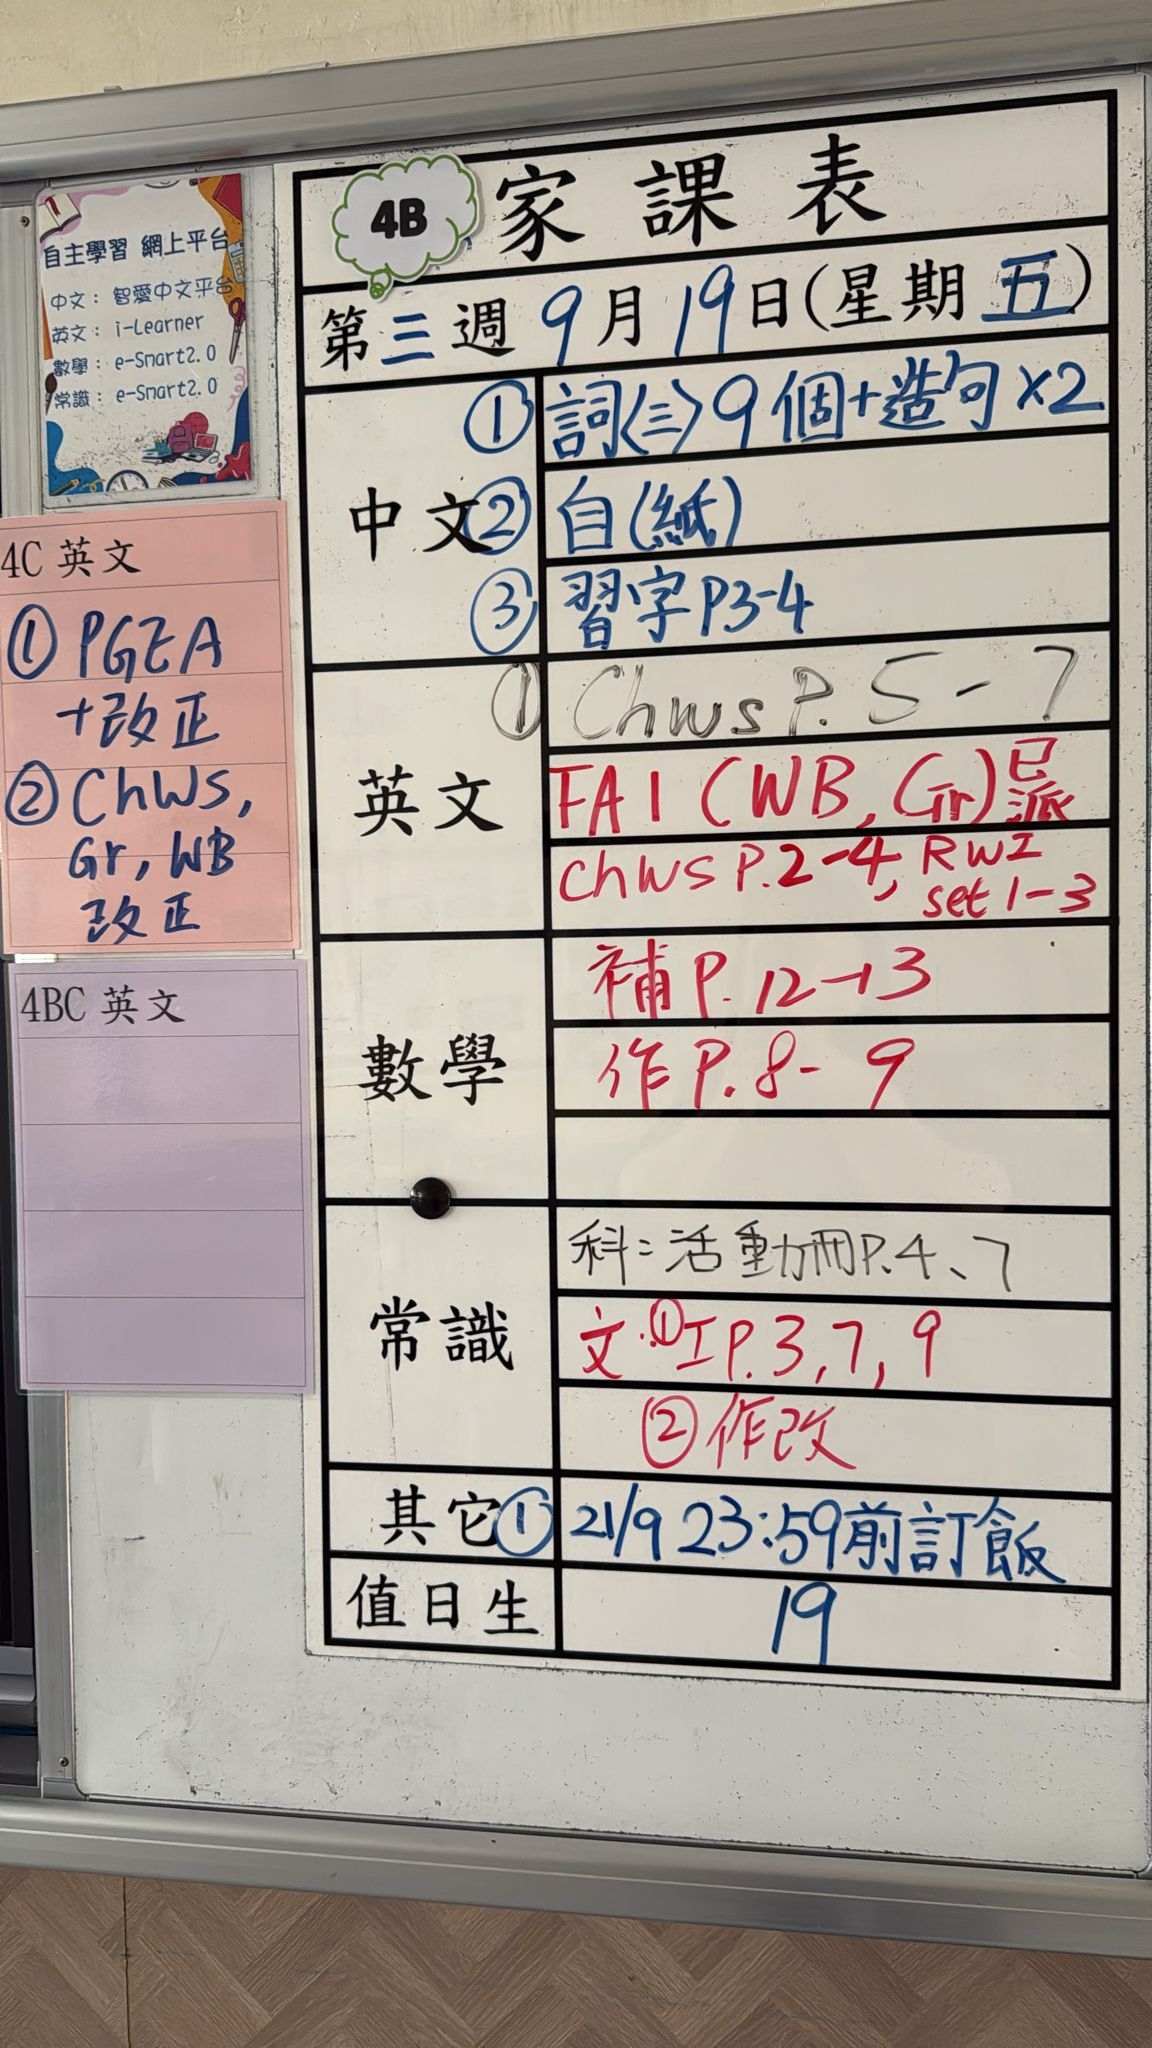 4B 家課表
第三週 9月19日(星期五)
自主學習 網上平台
中文：智愛中文平台
英文：i-Learner
數學：e-Smart2.0
常識：e-Smart2.0
中文
① 詞〈三〉9個+造句×2
② 自(紙)
③ 習字P3-4
英文
① Chws P. 5-7
FA1 (WB, Gr) 已派
Chws P.2-4, RWI set 1-3
數學
補P. 12-13
作P. 8-9
常識
科：活動冊P.4、7
文：①工P.3, 7, 9
②作改
其它
① 21/9 23:59前訂飯
值日生
19
4C 英文
① PGEA
+改正
② ChWs,
Gr, WB
改正
4BC 英文